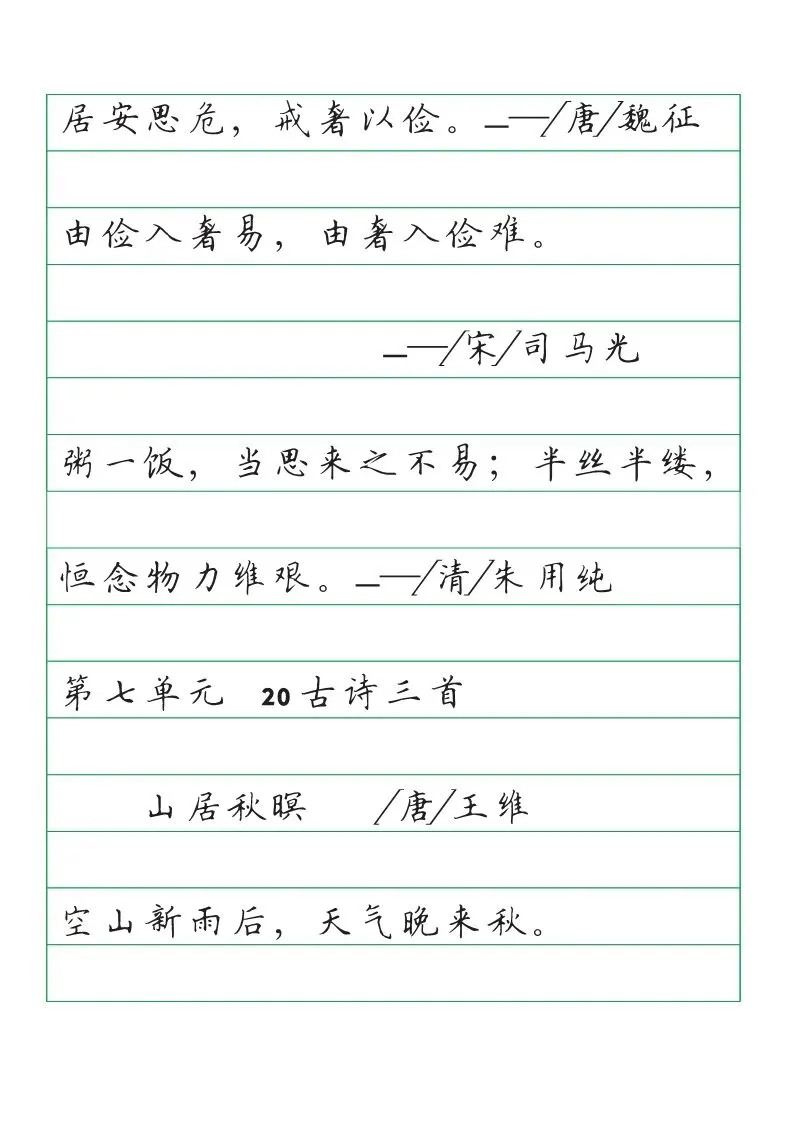 居安思危，戒奢以俭。——/唐/魏征
由俭入奢易，由奢入俭难。
——/宋/司马光
粥一饭，当思来之不易；半丝半缕，
恒念物力维艰。——/清/朱用纯
第七单元 20古诗三首
山居秋暝 /唐/王维
空山新雨后，天气晚来秋。